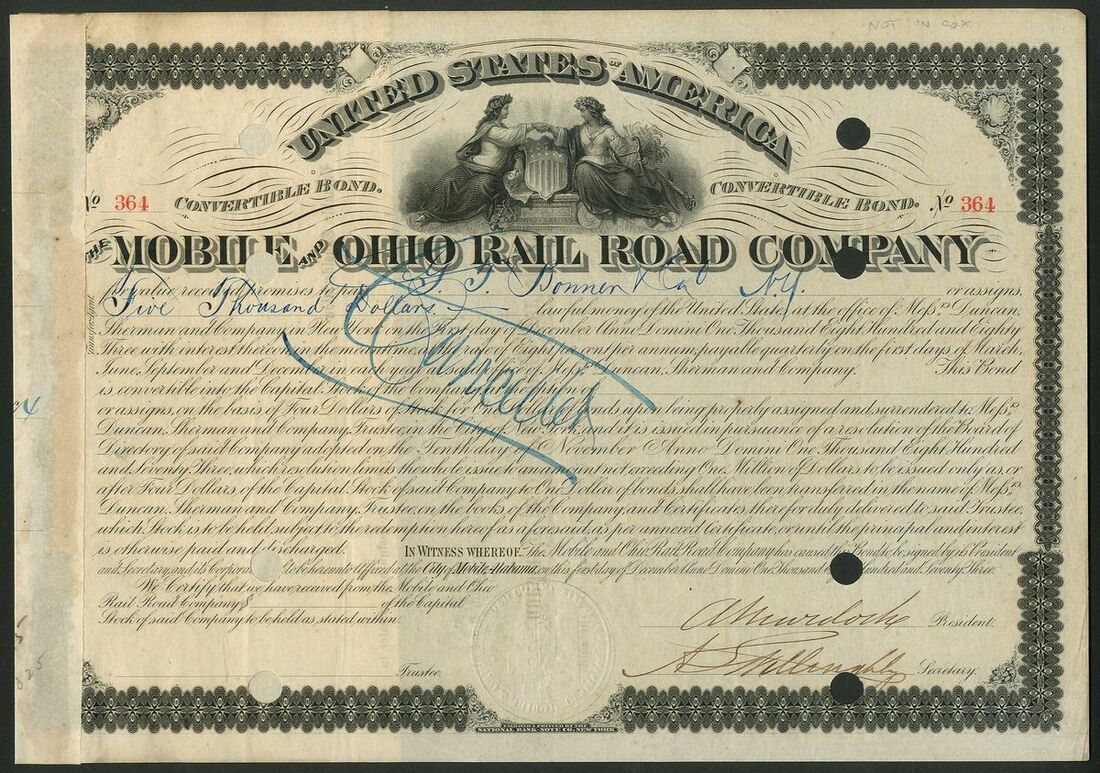 NOT IN COX
UNITED STATES OF AMERICA
CONVERTIBLE BOND. CONVERTIBLE BOND.
No 364 No 364
THE MOBILE AND OHIO RAIL ROAD COMPANY
for value received promises to pay Bonner & Co N.Y. or assigns,
Five Thousand Dollars. lawful money of the United States, at the office of Messrs. Duncan,
Sherman and Company in New York on the first day of December Anno Domini One Thousand Eight Hundred and Eighty
Three with interest thereon in the meantime, at the rate of Eight per cent per annum, payable quarterly on the first days of March,
June, September and December, in each year, at said office of Messrs. Duncan, Sherman and Company. This Bond
is convertible into the Capital Stock of the Company at the option of
or assigns, on the basis of Four Dollars of Stock for bonds upon being properly assigned and surrendered to Messrs.
Duncan, Sherman and Company, Trustee, in the City of New York and it is issued in pursuance of a resolution of the Board of
Directory of said Company adopted on the Tenth day of November Anno Domini One Thousand Eight Hundred
and Seventy Three, which resolution limits the whole issue to an amount not exceeding One Million of Dollars to be issued only as, or
after Four Dollars of the Capital Stock of said Company to One Dollar of bonds shall have been transferred in the name of Messrs.
Duncan, Sherman and Company, Trustee, on the books of the Company, and Certificates therefor duly delivered to said Trustee,
which Stock is to be held subject to the redemption hereof as aforesaid, as per annexed Certificate, or until the principal and interest
is otherwise paid and discharged. IN WITNESS WHEREOF. The Mobile and Ohio Rail Road Company has caused this Bond to be signed by its President
and Secretary, and its Corporate to be hereunto affixed at the City of Mobile, Alabama, on this first day of December Anno Domini One Thousand Eight Hundred and Seventy Three.
We Certify that we have received from the Mobile and Ohio
Rail Road Company $ of the Capital
Stock of said Company to be held as stated within.
Cancelled
A Murdock President.
Trustee Secretary.
ENGRAVED & PRINTED BY THE
NATIONAL BANK NOTE CO. NEW YORK